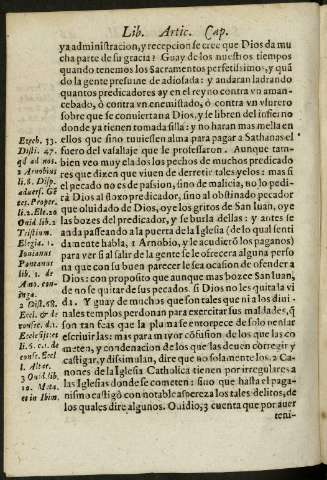 Lib. Artic. Cap.
ya administracion, y recepcion se cree que Dios da mu
cha parte de su gracia? Guay de los nuestros tiempos
quando tenemos los Sacramentos perfetissimos, y quā
do la gente presume de adiosada: y andaran ladrando
quantos predicadores ay en el reyno contra vn aman-
cebado, ò contra vn enemistado, ò contra vn vsurero
sobre que se conuiertan a Dios, y se libren del infierno
donde ya tienen tomada silla: y no haran mas mella en
ellos que sino tuuiessen alma para pagar a Sathanas el
fuero del vassallaje que le protestaron. Aunque tam-
bien veo muy elados los pechos de muchos predicado
res que dizen que viuen de derretir tales yelos: mas si
el pecado no es de passion, sino de malicia, no lo pedi-
rà Dios al floxo predicador, sino al obstinado pecador
que oluidado de Dios, oye los gritos de San Iuan, oye
las bozes del predicador, y se burla dellas: y antes se
anda passeando a la puerta de la Iglesia (de lo qual senti
damente habla, 1 Arnobio, y le acudierō los paganos)
para ver si al salir de la gente se le ofrecera alguna perso
na que con su buen parecer le sea ocasion de ofender a
Dios: con proposito que aunque mas bozee San Iuan,
de no se quitar de sus pecados. si Dios no les quita la vi
da. Y guay de muchos que son tales que ni a los diui-
nales templos perdonan para exercitar sus maldades, q̄
son tan feas que la pluma se entorpece de solo pensar
escriuir las: mas para mayor cōfusion de los que las co
meten, y condenacion de los que las deuen corregir y
castigar, y dissimulan, dire que no solamente los. 2 Ca-
nones de la Iglesia Catholica tienen por irregulares a
las Iglesias donde se cometen: sino que hasta el paga-
nismo castigó con notable aspereza los tales delitos, de
los quales dire algunos. Ouidio, 3 cuenta que por auer
teni-
Ezech. 33.
Disti. 47.
1 Arnobius
li. 8. Disp.
Ouid lib. 2
Tristium.
Elegia. 1.
Pontanus
lib. 1. de
2 Dist. 68.
3 Ouid. lib.
10. Meta.
es in Ibim.